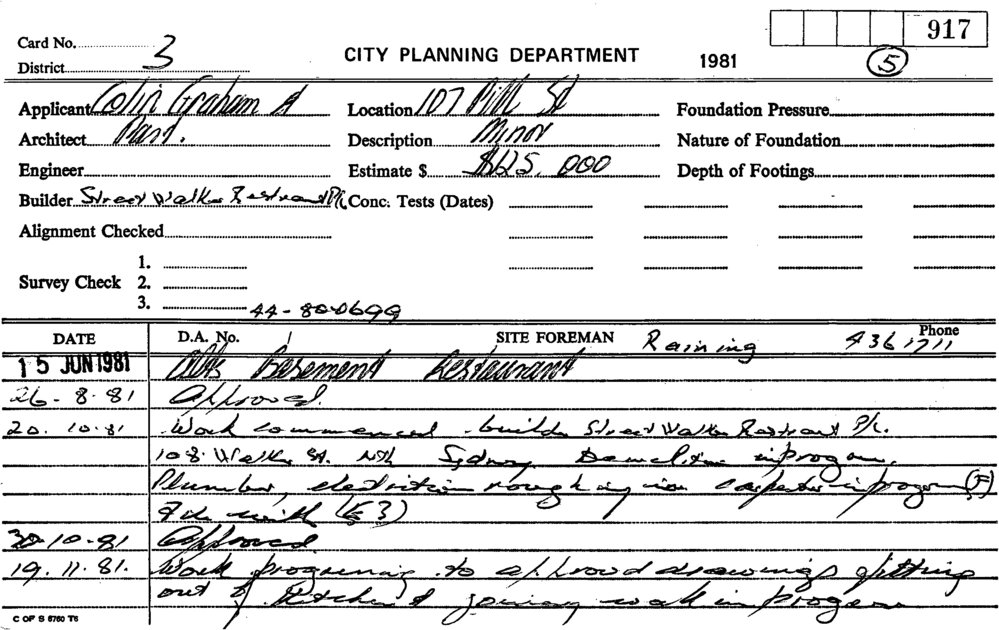 917
Card No. 3
District
CITY PLANNING DEPARTMENT 1981 5
Applicant Colin Graham & Location 107 Pitt St Foundation Pressure
Architect Part. Description Minor Nature of Foundation
Engineer Estimate $ $125,000 Depth of Footings
Builder Street Walker Restrant P/L Conc. Tests (Dates)
Alignment Checked
1.
Survey Check 2.
3. 44-80-0699
DATE D.A. No. SITE FOREMAN Raining Phone 436 1711
15 JUN 1981 Alts Basement Restaurant
26-8-81 Approved.
20.10.81 Work commenced builder Street Walker Restrant P/L.
108 Walker St. Nth Sydney in progress.
Plumber, rough in progress (F)
(E3)
30-10-81 Approved
19.11.81. Work progressing to approved drawings fitting
out of Kitchen & joinery work in progress
C OF S 5760 T6